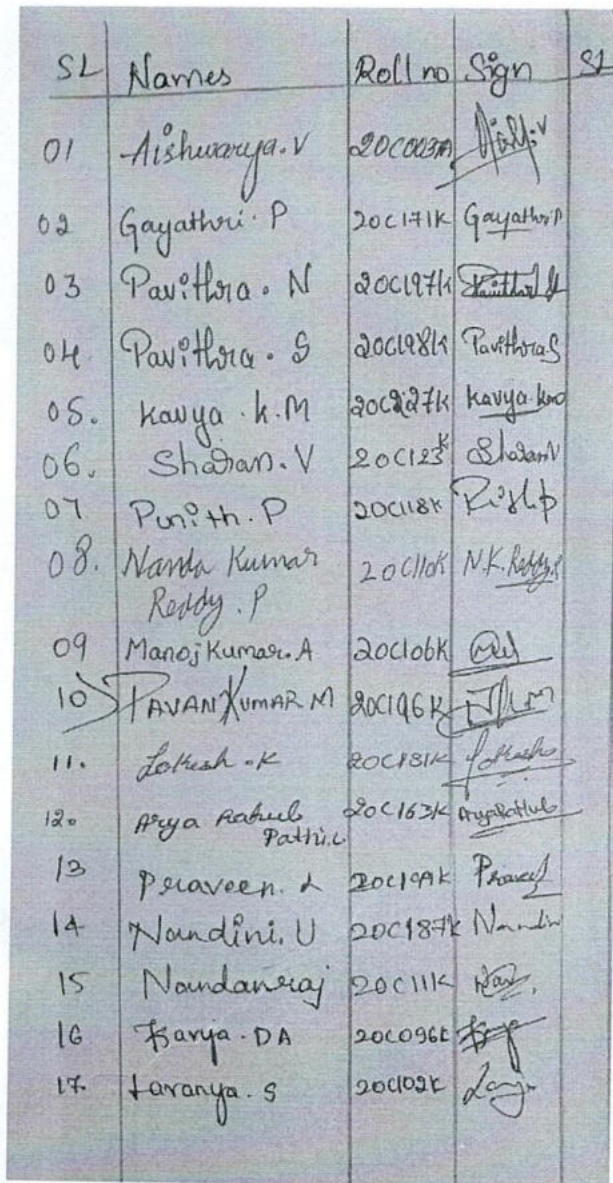 SL Names Roll no Sign SL
01 Aishwarya.V 20C003M
02 Gayathri.P 20C171K Gayathri.P
03 Pavithra.N 20C197K
04 Pavithra.S 20C198K PavithraS
05. Kavya.K.M 20C227K Kavya.k.m
06. Sharan.V 20C123K Sharan.V
07 Punith.P 20C118K
08. Nanda Kumar 20C110K N.K.Reddy.P
Reddy.P
09 Manoj Kumar.A 20C106K
10 PAVAN KUMAR M 20C196K
11. Lokesh.K 20C181K Lokesh
12. Arya 20C163K
13 Praveen.L Praveen
14 Nandini.U 20C187K Nandini
15 Nandanraj 20C111K
16 Kavya.DA 20C096K
17. Lavanya.S 20C102K